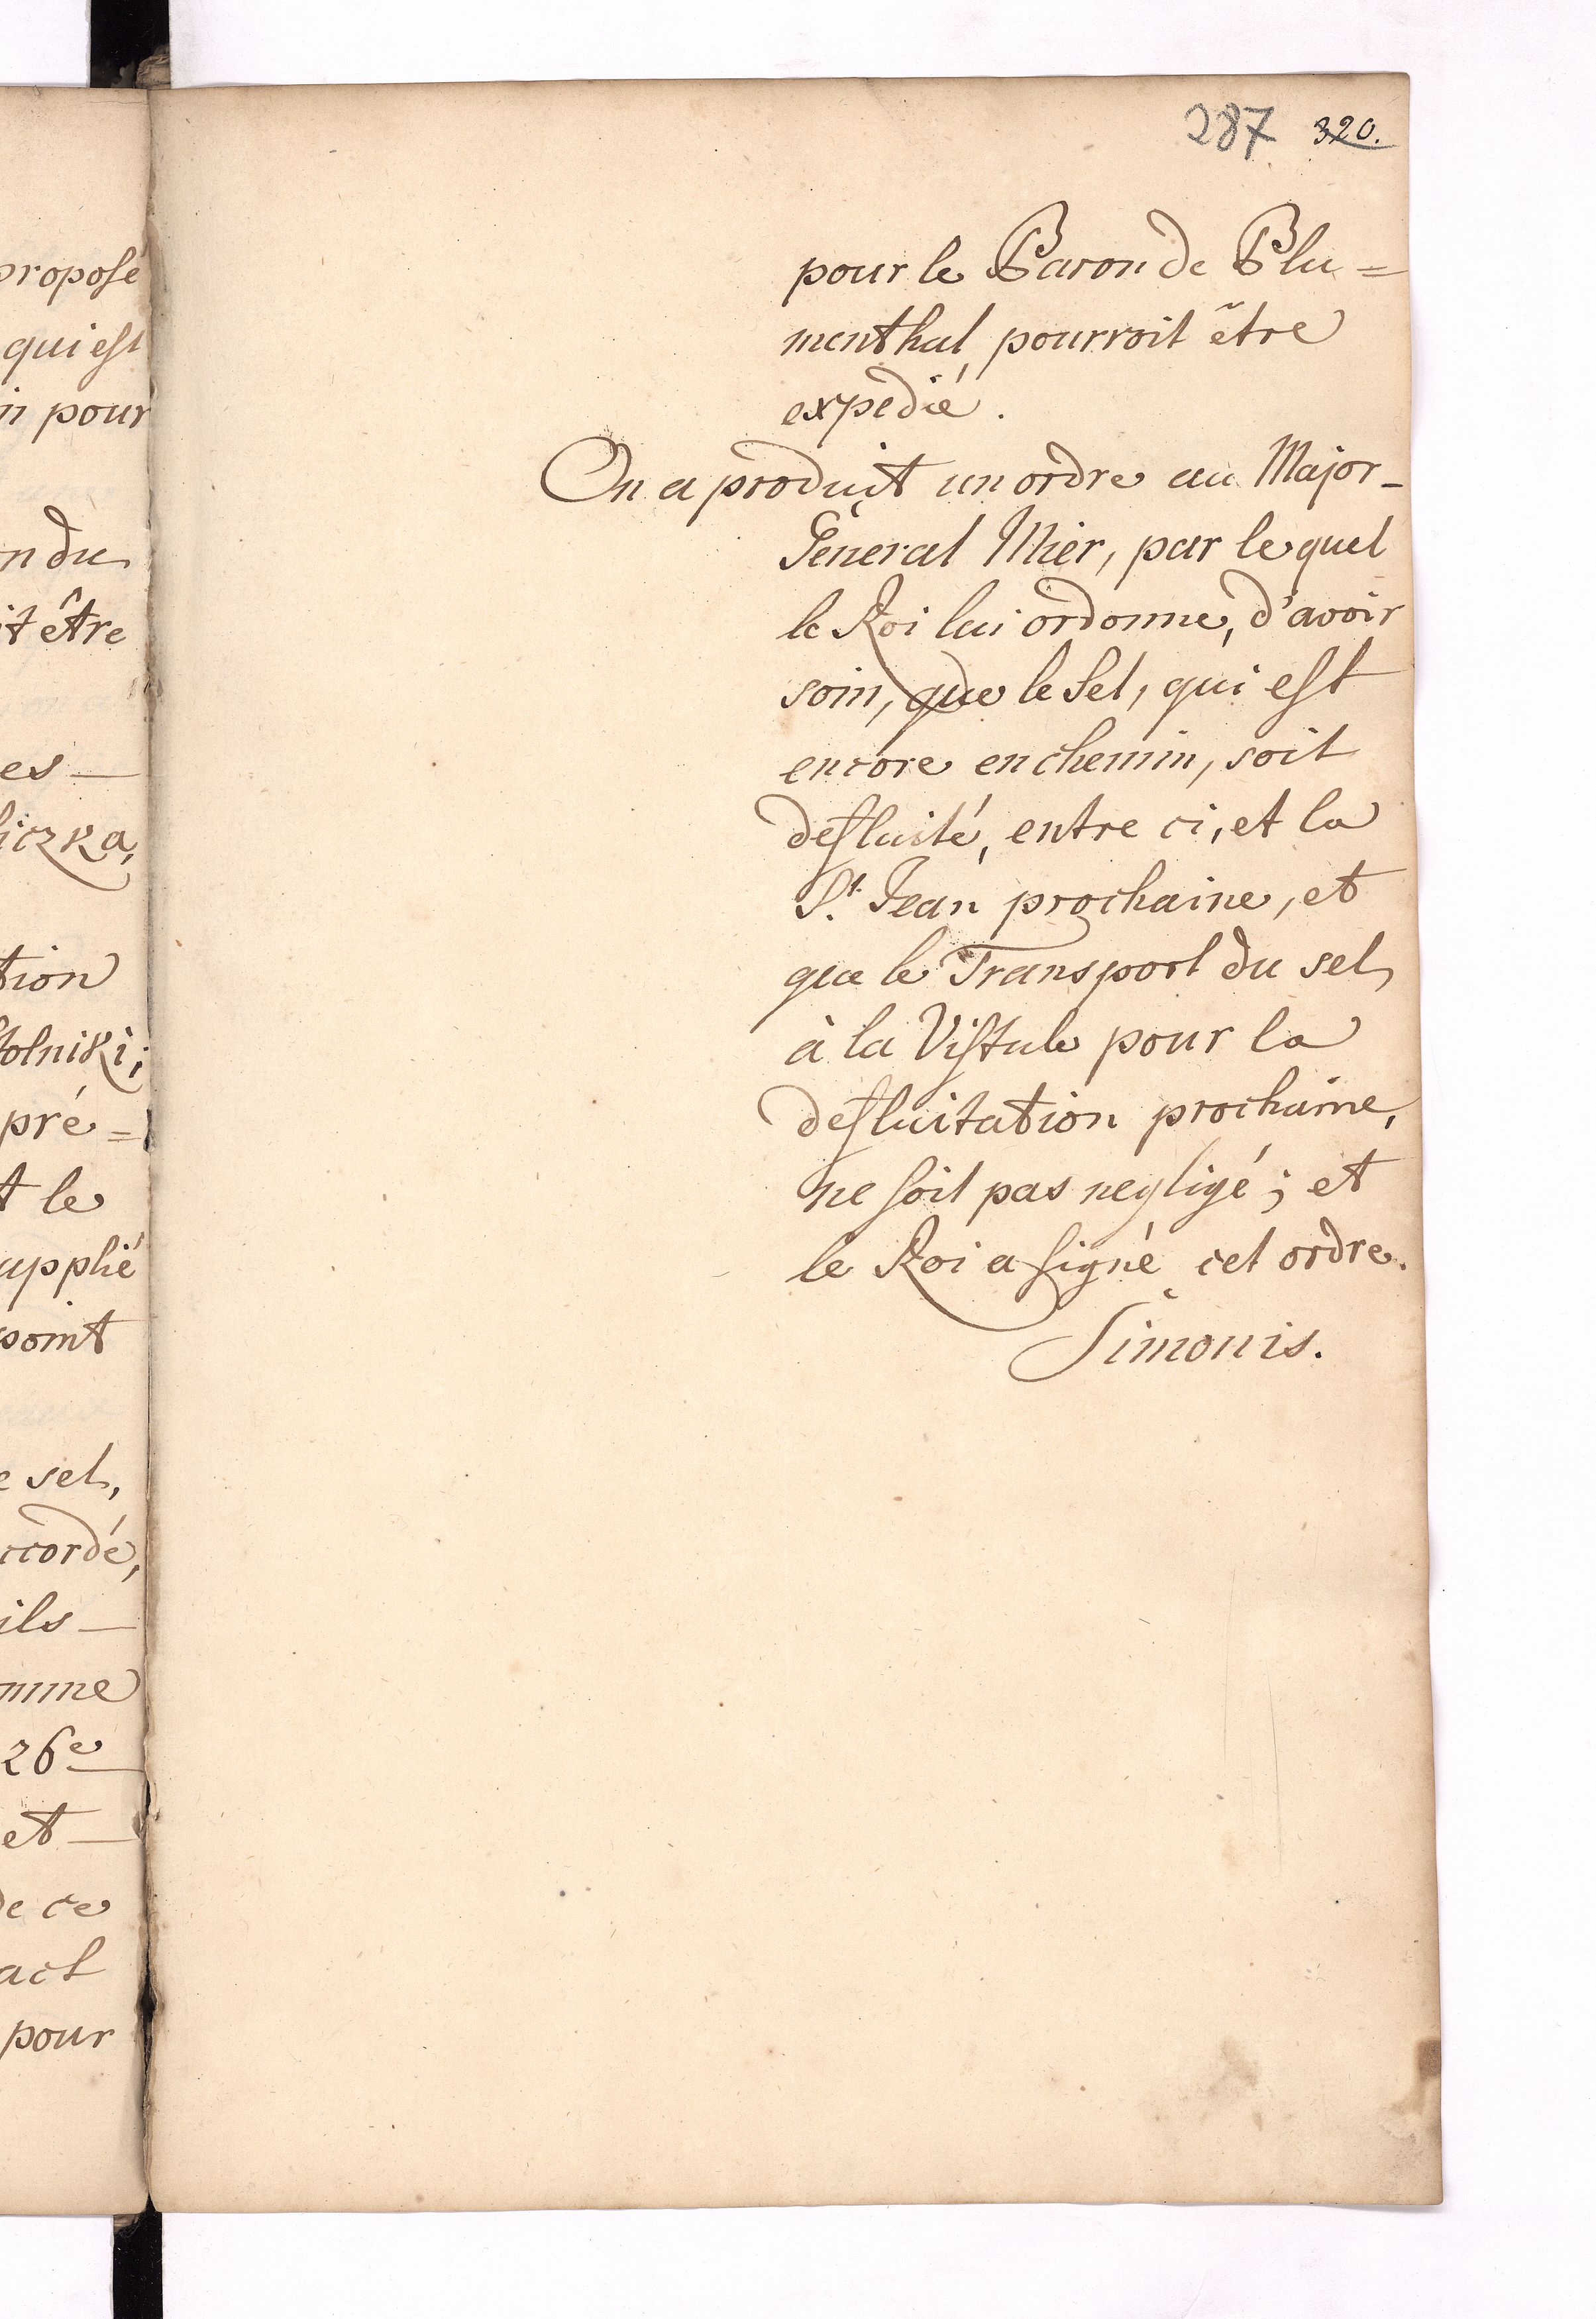 proposé
qui est
n pour
n du
it être
es —
liczka,
tion
Stolniki;
pré =
t le
upplié
point
e sel,
ccordé,
ils —
mme
26e
et —
de ce
act
pour
287 320.
pour le Baron de Blu=
menthal pourroit être
expedié.
On a produit un ordre au Major-
Géneral Mier, par le quel
le Roi lui ordonne, d'avoir
soin, que le Sel, qui est
encore en chemin, soit
defluité, entre ci, et la
St. Jean prochaine, et
que le Transport du sel
à la Vistule pour la
defluitation prochaine,
ne soit pas negligé; et
le Roi a signé cet ordre.
Simonis.